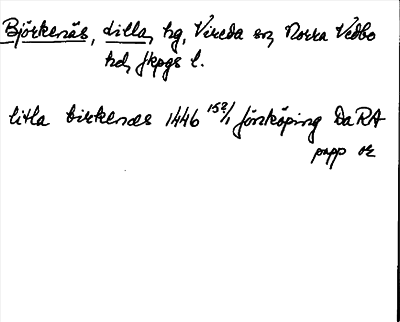 Björkenäs, Lilla, hg, Vireda sn, Norra Vedbo
hd, Jkpgs l.
litla birkenæs 1446 15?/1 Jönköping Da RA
papp or